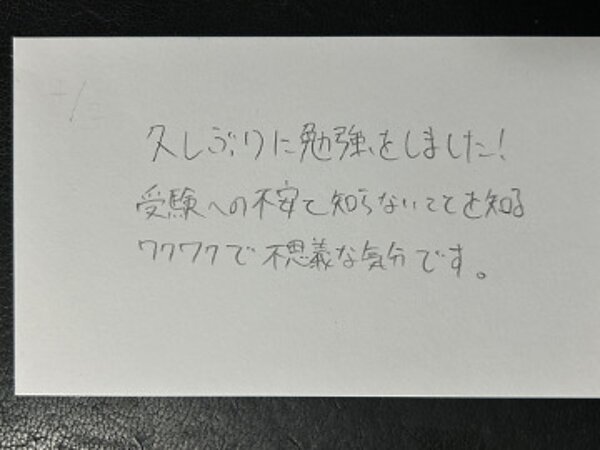 久しぶりに勉強をしました!
受験への不安と知らないことを知る
ワクワクで不思議な気分です。